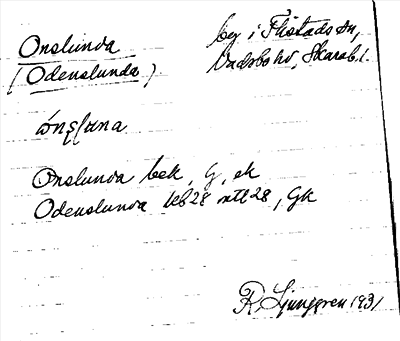 Onslunda
(Odenslunda).
by i Flistads sn,
Vadsbo hd, Skarab. l.
ònsluna
Onslunda bek, G, ek
Odenslunda kb28 mtl28, Gk
R. Ljunggren 1931